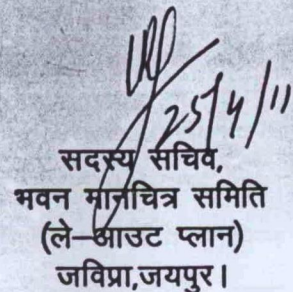 25/4/11
सदस्य सचिव,
भवन मानचित्र समिति
(ले–आउट प्लान)
जविप्रा,जयपुर।